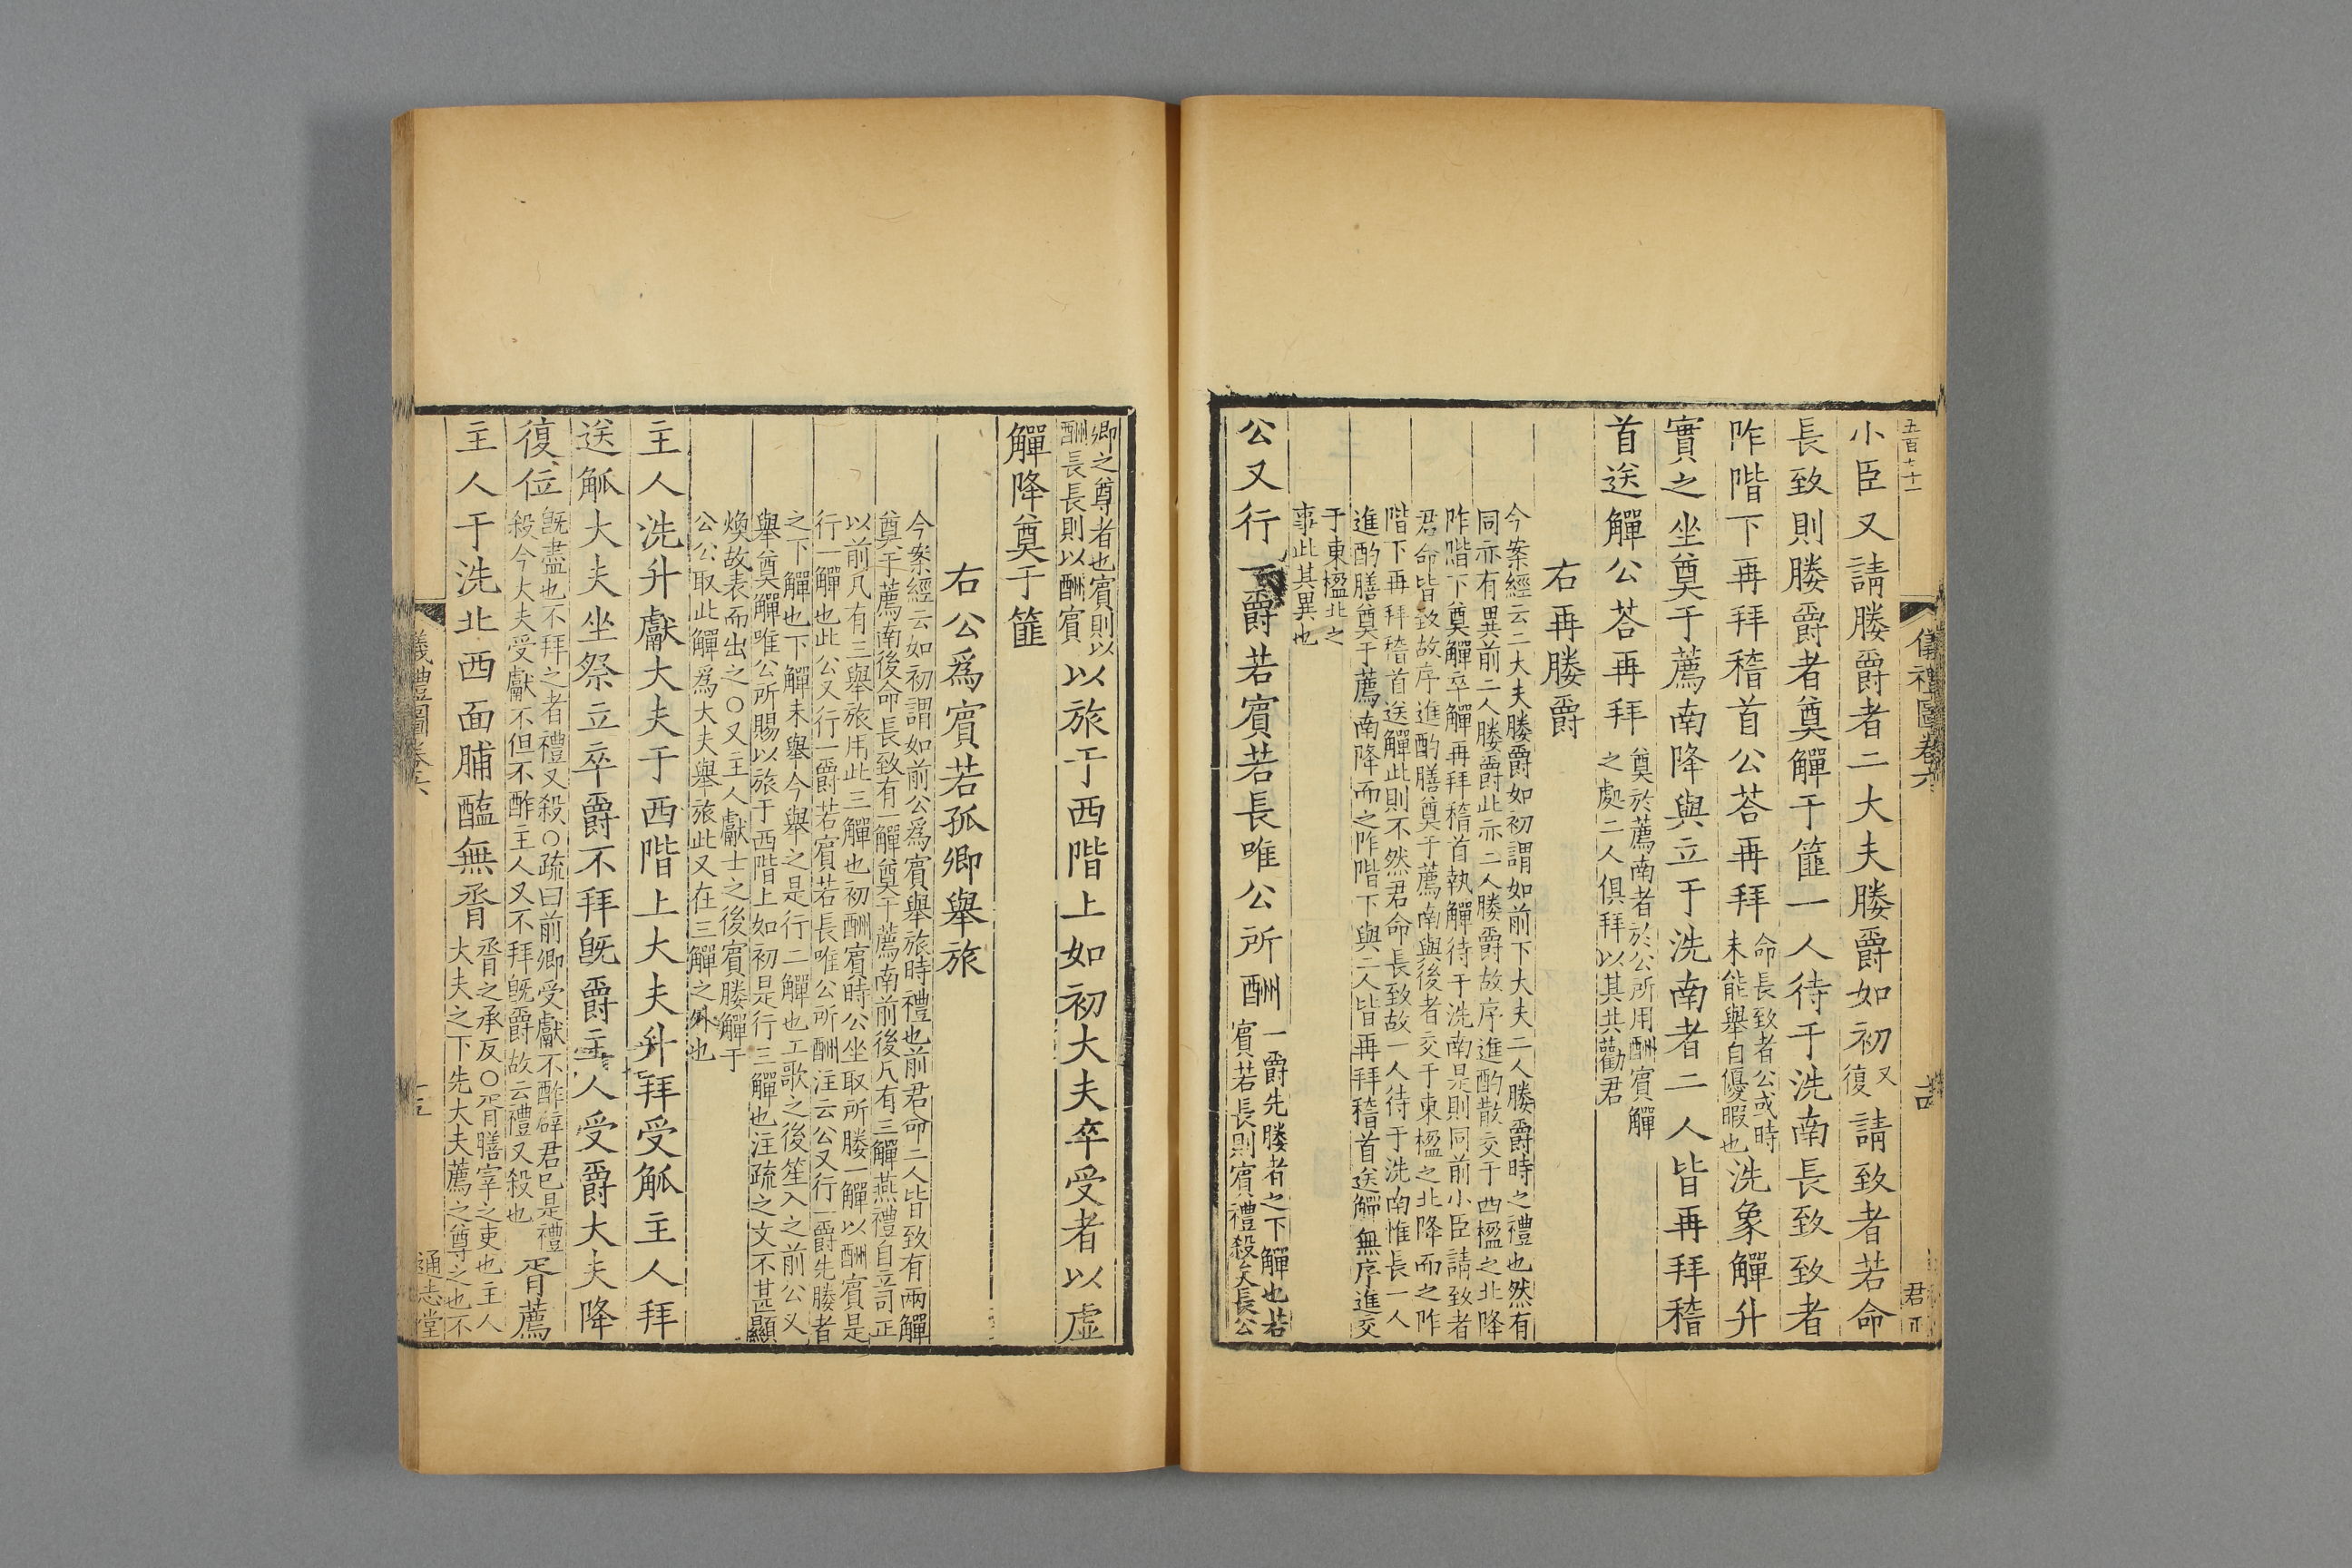 五百七十一
儀禮圖卷六
十四
君
小臣又請媵爵者二大夫媵爵如初又復請致者若命
長致則媵爵者奠觶于篚一人待于洗南長致致者
阼階下再拜稽首公荅再拜命長致者公或時未能舉自優暇也洗象觶升
實之坐奠于薦南降與立于洗南者二人皆再拜稽
首送觶公荅再拜奠於薦南者於公所用酬賓觶之處二人俱拜以其共勸君
右再媵爵
今案經云二大夫媵爵如初謂如前下大夫二人媵爵時之禮也然有
同亦有異前二人媵爵此亦二人媵爵故序進酌散交于西楹之北降
阼階下奠觶卒觶再拜稽首執觶待于洗南是則同前小臣請致者
君命皆致故序進酌膳奠于薦南與後者交于東楹之北降而之阼
階下再拜稽首送觶此則不然君命長致故一人待于洗南惟長一人
進酌膳奠于薦南降而之阼階下與二人皆再拜稽首送觶無序進交
于東楹北之
事此其異也
公又行一爵若賓若長唯公所酬一爵先媵者之下觶也若賓若長則賓禮殺矣長公
卿之尊者也賓則以酬長長則以酬賓以旅于西階上如初大夫卒受者以虛
觶降奠于篚
右公爲賓若孤卿舉旅
今案經云如初謂如前公爲賓舉旅時禮也前君命二人皆致有兩觶
奠于薦南後命長致有一觶奠于薦南前後凡有三觶燕禮自立司正
以前凡有三舉旅用此三觶也初酬賓時公坐取所媵一觶以酬賓是
行一觶也此公又行一爵若賓若長唯公所酬注云公又行一爵先媵者
之下觶也下觶未舉今舉之是行二觶也工歌之後笙入之前公又
舉奠觶唯公所賜以旅于西階上如初是行三觶也注疏之文不甚顯
煥故表而出之○又主人獻士之後賓媵觶于
公公取此觶爲大夫舉旅此又在三觶之外也
主人洗升獻大夫于西階上大夫升拜受觚主人拜
送觚大夫坐祭立卒爵不拜旣爵主人受爵大夫降
復位旣盡也不拜之者禮又殺○疏曰前卿受獻不酢辟君已是禮殺今大夫受獻不但不酢主人又不拜旣爵故云禮又殺也胥薦
主人于洗北西面脯醢無脀脀之承反○胥膳宰之吏也主人大夫之下先大夫薦之尊之也不
儀禮圖卷六
十五
通志堂